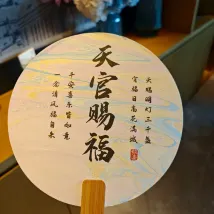 天赐明灯三千盏
官福日高花满城
天官赐福
平安喜乐皆如意
一念清风福自来